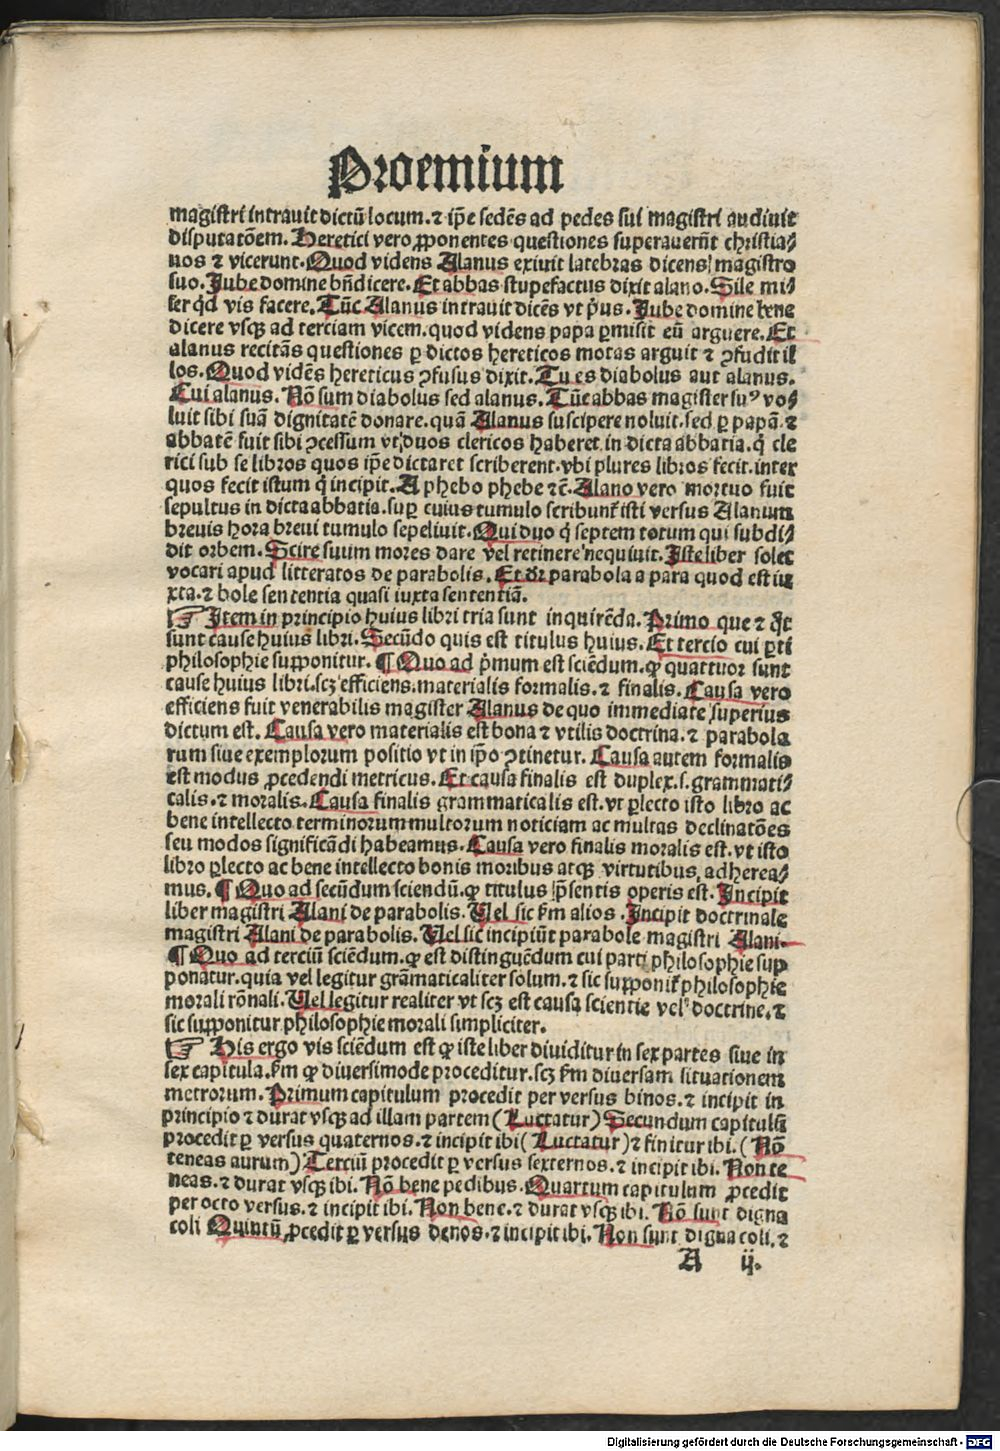 Proemium
magistri intrauit dictū locum. ⁊ ip̄e sedēs ad pedes sui magistri audiuit
disputatōem. Heretici vero ꝓponentes questiones superauerūt christia⸗
nos ⁊ vicerunt. Quod videns Alanus exiuit latebras dicens magistro
suo. Jube domine bn̄dicere. Et abbas stupefactus dixit alano. Sile mi⸗
ser qͥd vis facere. Tūc Alanus intrauit dicēs vt pͥus. Jube domine bene
dicere vsqꝫ ad terciam vicem. quod videns papa ꝑmisit eū arguere. Et
alanus recitās questiones ꝑ dictos hereticos motas arguit ⁊ ꝯfudit il
los. Quod vidēs hereticus ꝯfusus dixit. Tu es diabolus aut alanus.
Cui alanus. Nō sum diabolus sed alanus. Tūc abbas magister suꝰ vo⸗
luit sibi suā dignitatē donare. quā Alanus suscipere noluit. sed ꝑ papā ⁊
abbatē fuit sibi ꝯcessum vt duos clericos haberet in dicta abbatia. qͥ cle
rici sub se libros quos ip̄e dictaret scriberent. vbi plures libros fecit. inter
quos fecit istum qͥ incipit. A phebo phebe ⁊c̄. Alano vero mortuo fuit
sepultus in dicta abbatia. suꝑ cuius tumulo scribunt᷑ isti versus Alanum
breuis hora breui tumulo sepeliuit. Qui duo qͥ septem totum qui subdi⸗
dit orbem. Scire suum mores dare vel retinere nequiuit. Iste liber solet
vocari apud litteratos de parabolis. Et dr̄ parabola a para quod est iu
xta. ⁊ bole sententia quasi iuxta sententiā.
☞ Item in principio huius libri tria sunt inquirēda. Primo que ⁊ qͦt
sunt cause huius libri. Secūdo quis est titulus huius. Et tercio cui ꝑti
philosophie supponitur. ¶ Quo ad pͥmum est sciēdum. ꝙ quattuor sunt
cause huius libri. scꝫ efficiens. materialis formalis. ⁊ finalis. Causa vero
efficiens fuit venerabilis magister Alanus de quo immediate superius
dictum est. Causa vero materialis est bona ⁊ vtilis doctrina. ⁊ parabola
rum siue exemplorum positio vt in ip̄o ꝯtinetur. Causa autem formalis
est modus ꝓcedendi metricus. Et causa finalis est duplex. s. grammati⸗
calis. ⁊ moralis. Causa finalis grammaticalis est. vt ꝑlecto isto libro ac
bene intellecto terminorum multorum noticiam ac multas declinatōes
seu modos significādi habeamus. Causa vero finalis moralis est. vt isto
libro ꝑlecto ac bene intellecto bonis moribus atqꝫ virtutibus adherea⸗
mus. ¶ Quo ad secūdum sciendū. ꝙ titulus p̄sentis operis est. Incipit
liber magistri Alani de parabolis. Uel sic ẜm alios. Incipit doctrinale
magistri Alani de parabolis. Uel sic incipiūt parabole magistri Alani.
¶ Quo ad terciū sciēdum. ꝙ est distinguēdum cui parti philosophie sup
ponatur. quia vel legitur grāmaticaliter solum. ⁊ sic supponit᷑ philosophie
morali rōnali. Uel legitur realiter vt scꝫ est causa scientie vel doctrine. ⁊
sic supponitur philosophie morali simpliciter.
☞ His ergo vis sciēdum est ꝙ iste liber diuiditur in sex partes siue in
sex capitula. ẜm ꝙ diuersimode proceditur. scꝫ ẜm diuersam situationem
metrorum. Primum capitulum procedit per versus binos. ⁊ incipit in
principio ⁊ durat vsqꝫ ad illam partem (Luctatur) Secundum capitulū
procedit ꝑ versus quaternos. ⁊ incipit ibi (Luctatur) ⁊ finitur ibi. (Nō
teneas aurum) Terciū procedit ꝑ versus sexternos. ⁊ incipit ibi. Non te
neas. ⁊ durat vsqꝫ ibi. Nō bene pedibus. Quartum capitulum ꝓcedit
per octo versus. ⁊ incipit ibi. Non bene. ⁊ durat vsqꝫ ibi. Nō sunt digna
coli Quintū ꝓcedit ꝑ versus denos. ⁊ incipit ibi. Non sunt digna coli. ⁊
A ij.
Digitalisierung gefördert durch die Deutsche Forschungsgemeinschaft - DFG